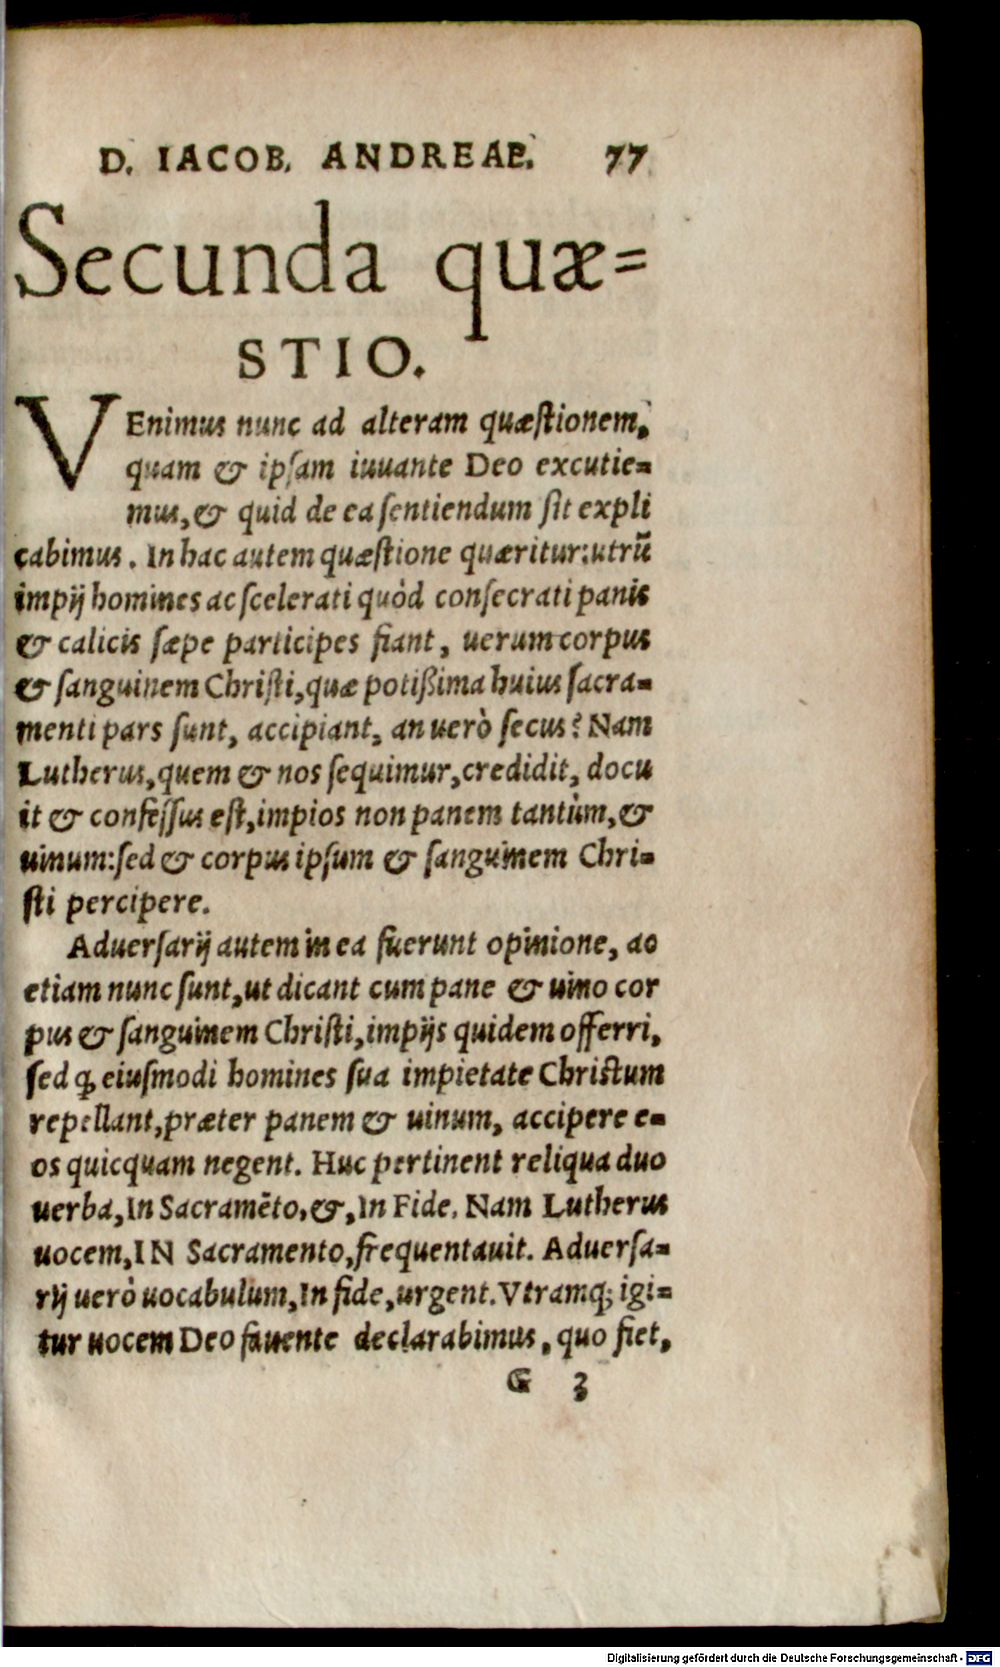 D. IACOB. ANDREAE. 77
Secunda quæ=
STIO.
VEnimus nunc ad alteram quæstionem,
quam & ipsam iuuante Deo excutie=
mus, & quid de ea sentiendum sit expli
cabimus. In hac autem quæstione quæritur: utrũ
impij homines ac scelerati quòd consecrati panis
& calicis sæpe participes fiant, uerum corpus
& sanguinem Christi, quæ potißima huius sacra=
menti pars sunt, accipiant, an uerò secus? Nam
Lutherus, quem & nos sequimur, credidit, docu
it & confessus est, impios non panem tantùm, &
uinum: sed & corpus ipsum & sanguinem Chri=
sti percipere.
Aduersarij autem in ea fuerunt opinione, ac
etiam nunc sunt, ut dicant cum pane & uino cor
pus & sanguinem Christi, impijs quidem offerri,
sed ꝙ eiusmodi homines sua impietate Christum
repellant, præter panem & uinum, accipere e=
os quicquam negent. Huc pertinent reliqua duo
uerba, In Sacramēto, &, In Fide. Nam Lutherus
uocem, IN Sacramento, frequentauit. Aduersa=
rij uerò uocabulum, In fide, urgent. Vtramq; igi=
tur uocem Deo fauente declarabimus, quo fiet,
G 3
Digitalisierung gefördert durch die Deutsche Forschungsgemeinschaft - DFG